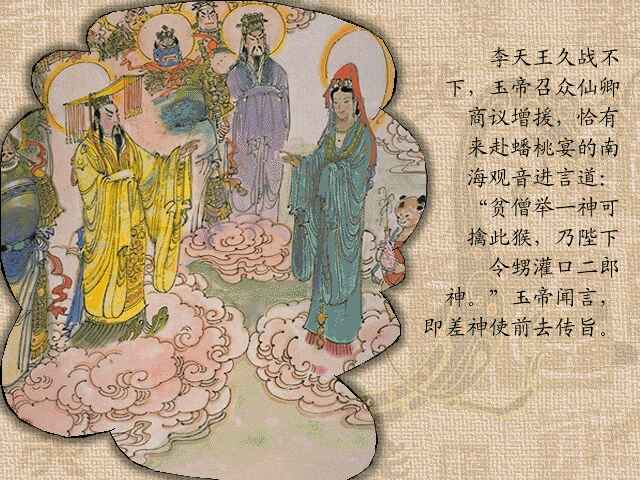 李天王久战不
下，玉帝召众仙卿
商议增援，恰有
来赴蟠桃宴的南
海观音进言道：
“贫僧举一神可
擒此猴，乃陛下
令甥灌口二郎
神。”玉帝闻言，
即差神使前去传旨。